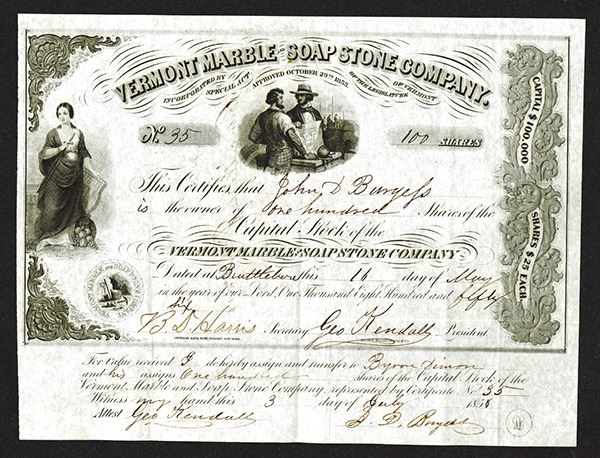 VERMONT MARBLE AND SOAP STONE COMPANY.
INCORPORATED BY SPECIAL ACT APPROVED OCTOBER 29TH 1855. OF THE LEGISLATURE OF VERMONT
No. 35
100 SHARES
CAPITAL $100,000
SHARES $25 EACH.
This Certifies that John D Burgess
is the owner of One hundred Shares of the
Capital Stock of the
VERMONT MARBLE AND SOAP STONE COMPANY
Dated at Brattleboro this 16 day of May
in the year of our Lord, One Thousand Eight Hundred and fifty
six
Harris Secretary Geo Kendall President
For value received I do hereby assign and transfer to Byron
and his assigns One hundred shares of the Capital Stock of the
Vermont Marble and Soap Stone Company, represented by Certificate No 35
Witness my hand this 3 day of July 185
Attest
Geo Kendall J. D. Burgess